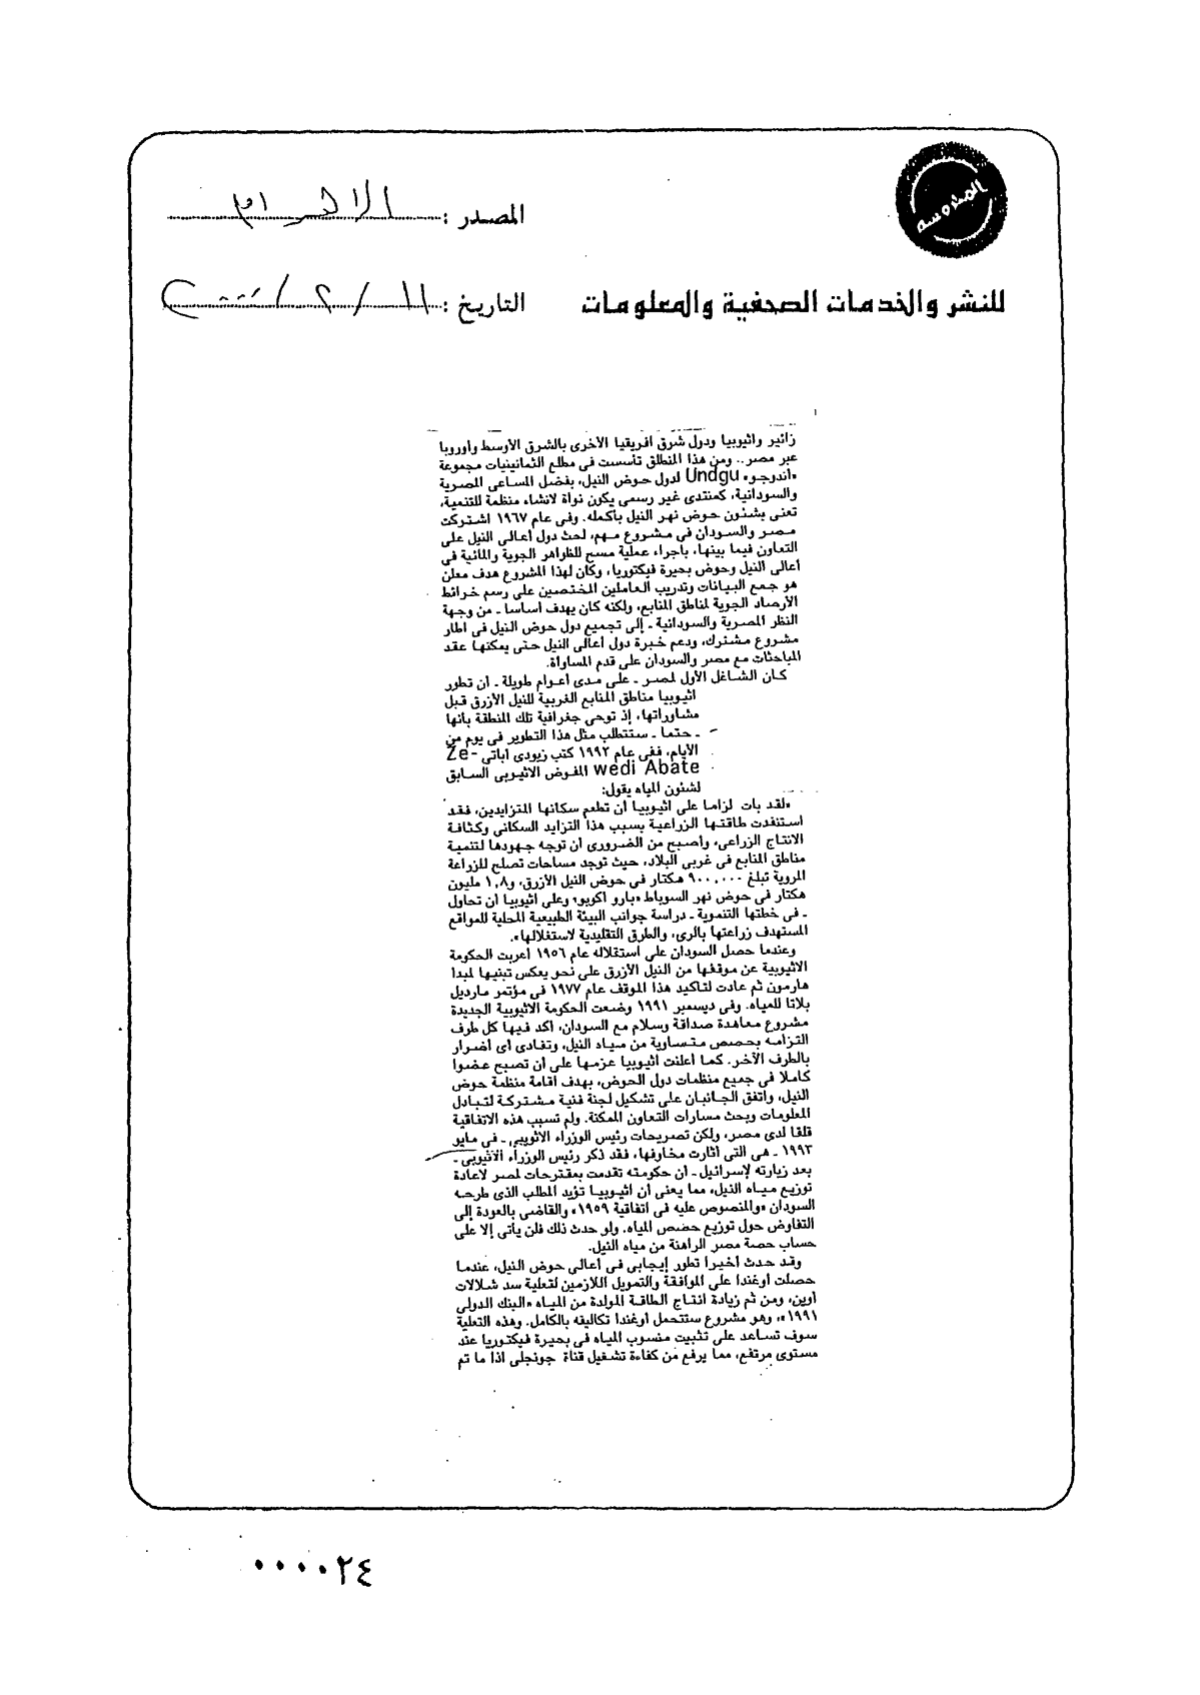 المصدر : الاهرام
المحروسة
للنشر والخدمات الصحفية والمعلومات
التاريخ : ١١ / ٢ / ٢٠٠٠
زائير واثيوبيا ودول شرق افريقيا الأخرى بالشرق الأوسط وأوروبا
عبر مصر.. ومن هذا المنطلق تأسست فى مطلع الثمانينيات مجموعة
«اندوجو» Undgu لدول حوض النيل، بفضل المساعى المصرية
والسودانية، كمنتدى غير رسمى يكون نواة لانشاء منظمة للتنمية،
تعنى بشئون حوض نهر النيل بأكمله. وفى عام ١٩٦٧ اشتركت
مصر والسودان فى مشروع مهم، لحث دول أعالى النيل على
التعاون فيما بينها، بأجراء عملية مسح للظواهر الجوية والمائية فى
أعالى النيل وحوض بحيرة فيكتوريا، وكان لهذا المشروع هدف معلن
هو جمع البيانات وتدريب العاملين المختصين على رسم خرائط
الأرصاد الجوية لمناطق المنابع، ولكنه كان يهدف أساسا ـ من وجهة
النظر المصرية والسودانية ـ إلى تجميع دول حوض النيل فى اطار
مشروع مشترك، ودعم خبرة دول أعالى النيل حتى يمكنها عقد
المباحثات مع مصر والسودان على قدم المساواة.
كان الشاغل الأول لمصر ـ على مدى أعوام طويلة ـ أن تطور
اثيوبيا مناطق المنابع الغربية للنيل الأزرق قبل
مشاوراتها، إذ توحى جغرافية تلك المنطقة بأنها
ـ حتما ـ ستتطلب مثل هذا التطوير فى يوم من
الأيام، ففى عام ١٩٩٢ كتب زيودى اباتى Ze-
wedi Abate المفوض الاثيوبى السابق
لشئون المياه يقول:
«لقد بات لزاما على اثيوبيا أن تطعم سكانها المتزايدين، فقد
استنفدت طاقتها الزراعية بسبب هذا التزايد السكانى وكثافة
الانتاج الزراعى، وأصبح من الضرورى أن توجه جهودها لتنمية
مناطق المنابع فى غربى البلاد، حيث توجد مساحات تصلح للزراعة
المروية تبلغ ٩٠٠,٠٠٠ هكتار فى حوض النيل الأزرق، و١,٨ مليون
هكتار فى حوض نهر السوباط «بارو اكوبو» وعلى اثيوبيا أن تحاول
ـ فى خطتها التنموية ـ دراسة جوانب البيئة الطبيعية المحلية للمواقع
المستهدف زراعتها بالرى، والطرق التقليدية لاستغلالها».
وعندما حصل السودان على استقلاله عام ١٩٥٦ أعربت الحكومة
الاثيوبية عن موقفها من النيل الأزرق على نحو يعكس تبنيها لمبدا
هارمون ثم عادت لتاكيد هذا الموقف عام ١٩٧٧ فى مؤتمر مارديل
بلاتا للمياه. وفى ديسمبر ١٩٩١ وضعت الحكومة الاثيوبية الجديدة
مشروع معاهدة صداقة وسلام مع السودان، اكد فيها كل طرف
التزامه بحصص متساوية من مياه النيل، وتفادى اى اضرار
بالطرف الآخر. كما اعلنت اثيوبيا عزمها على أن تصبح عضوا
كاملا فى جميع منظمات دول الحوض، بهدف اقامة منظمة حوض
النيل، واتفق الجانبان على تشكيل لجنة فنية مشتركة لتبادل
المعلومات وبحث مسارات التعاون الممكنة. ولم تسبب هذه الاتفاقية
قلقا لدى مصر، ولكن تصريحات رئيس الوزراء الاثيوبى ـ فى مايو
١٩٩٣ ـ هى التى أثارت مخاوفها، فقد ذكر رئيس الوزراء الاثيوبى ـ
بعد زيارته لإسرائيل ـ أن حكومته تقدمت بمقترحات لمصر لاعادة
توزيع مياه النيل، مما يعنى أن اثيوبيا تؤيد المطلب الذى طرحه
السودان «والمنصوص عليه فى اتفاقية ١٩٥٩» والقاضى بالعودة إلى
التفاوض حول توزيع حصص المياه. ولو حدث ذلك فلن يأتى إلا على
حساب حصة مصر الراهنة من مياه النيل.
وقد حدث أخيرا تطور إيجابى فى أعالى حوض النيل، عندما
حصلت أوغندا على الموافقة والتمويل اللازمين لتعلية سد شلالات
أوين، ومن ثم زيادة انتاج الطاقة المولدة من المياه «البنك الدولى
١٩٩١»، وهو مشروع ستتحمل أوغندا تكاليفه بالكامل. وهذه التعلية
سوف تساعد على تثبيت منسوب المياه فى بحيرة فيكتوريا عند
مستوى مرتفع، مما يرفع من كفاءة تشغيل قناة جونجلى اذا ما تم
٠٠٠٠٢٤